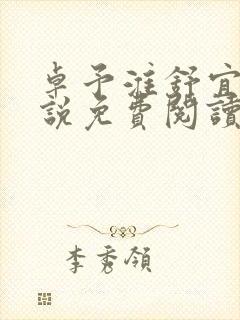 卓予淮舒宜
說免費閱讀
李秀領